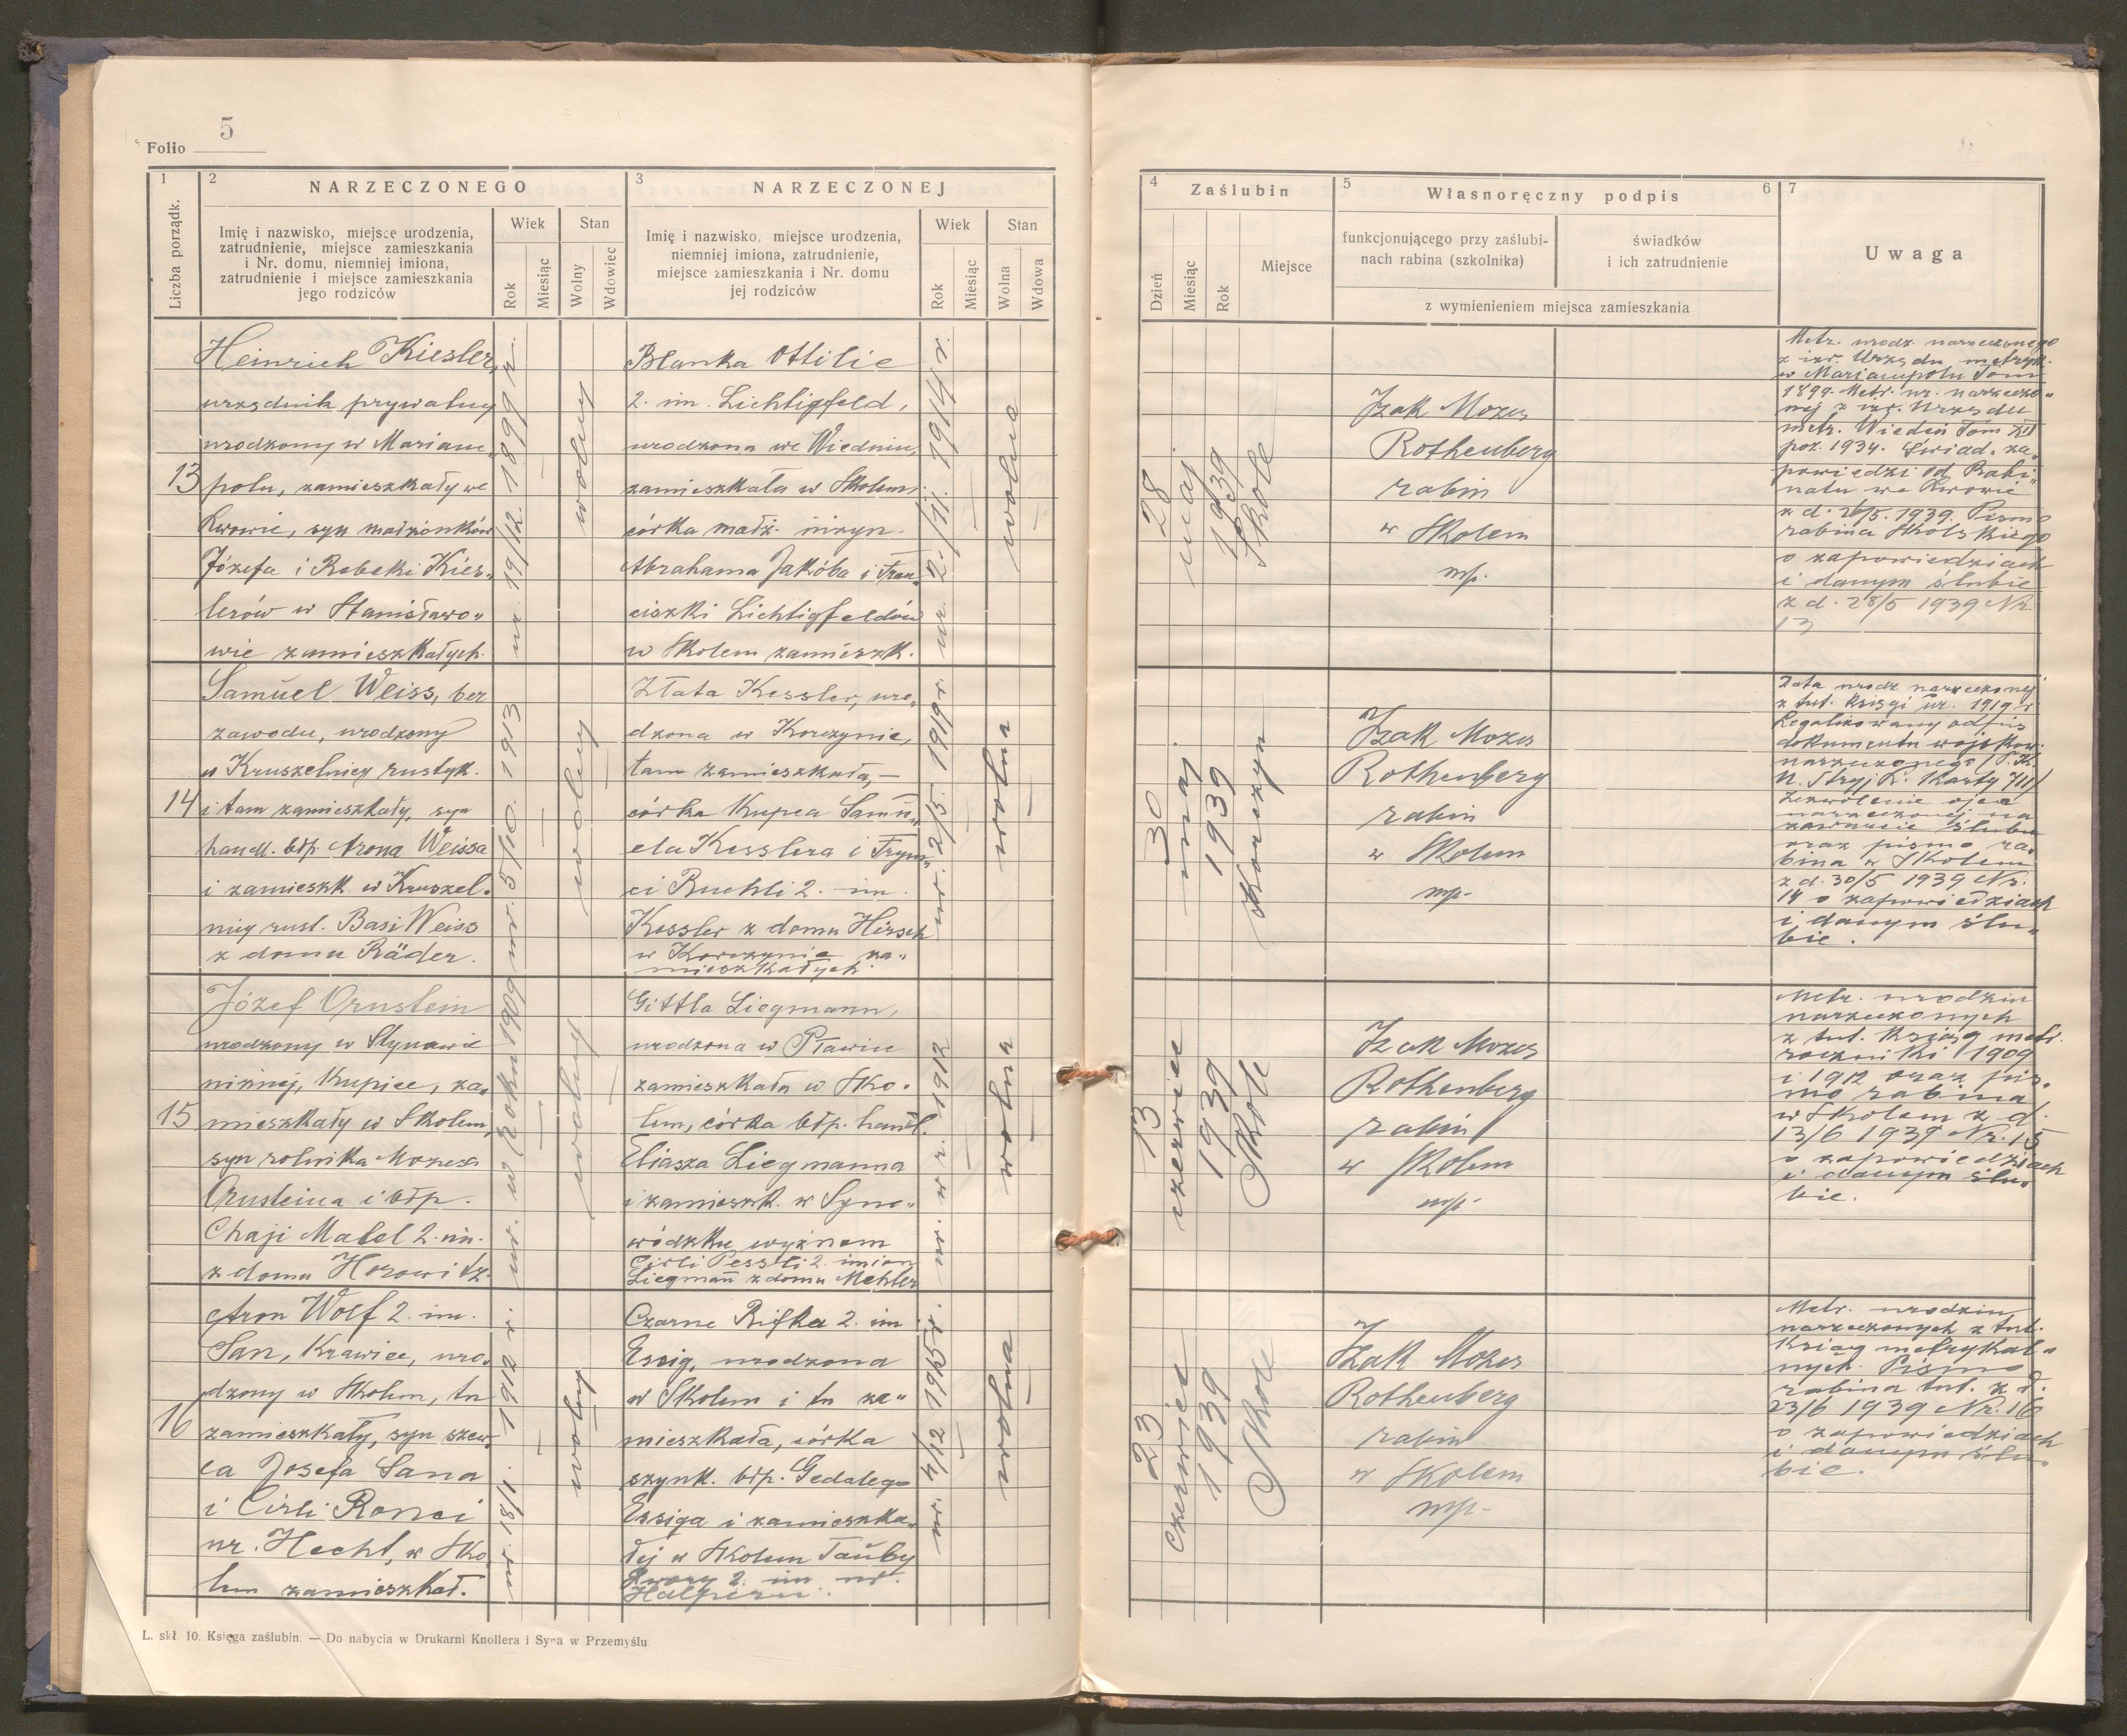 5
Folio
1
2
NARZECZONEGO
3
NARZECZONEJ
Liczba porządk.
Imię i nazwisko, miejsce urodzenia,
zatrudnienie, miejsce zamieszkania
i Nr. domu, niemniej imiona,
zatrudnienie i miejsce zamieszkania
jego rodziców
Wiek
Rok
Miesiąc
Stan
Wolny
Wdowiec
Imię i nazwisko, miejsce urodzenia,
niemniej imiona, zatrudnienie,
miejsce zamieszkania i Nr. domu
jej rodziców
Wiek
Rok
Miesiąc
Stan
Wolna
Wdowa
13
Heinrich Kiesler,
urzędnik prywatny
urodzony w Mariam-
polu, zamieszkały we
Lwowie, syn małżonków
Józefa i Rebeki Kies-
lerów w Stanisławo-
wie zamieszkałych.
ur. 19/12. 1899 r.
wolny
Blanka Ottilie
2. im. Lichtigfeld,
urodzona we Wiedniu,
zamieszkała w Skolem,
córka małż. inżyn.
Abrahama Jakóba i Fran-
ciszki Lichtigfeldów
w Skolem zamieszk.
ur. 2/11. 1914 r.
wolna
14
Samuel Weiss, bez
zawodu, urodzony
w Kruszelnicy rustyk.
i tam zamieszkały, syn
handl. błp. Arona Weissa
i zamieszk. w Kruszel-
nicy rust. Basi Weiss
z domu Räder.
ur. 5/10. 1913
wolny
Złata Kessler, uro-
dzona w Korczynie,
tam zamieszkała, —
córka kupca Samu-
ela Kesslera i Frym-
ci Ruchli 2. im.
Kessler z domu Hirsch
w Korczynie za-
mieszkałych.
ur. 2/5. 1919 r.
wolna
15
Józef Ornstein
urodzony w Synowie
niżnej, kupiec, za-
mieszkały w Skolem,
syn rolnika Mozesa
Ornsteina i błp.
Chaji Matel 2. im.
z domu Horowitz
ur. w roku 1909
wolny
Gittla Liegmann,
urodzona w Pławiu
zamieszkała w Sko-
lem, córka błp. handl.
Eliasza Liegmanna
i zamieszk. w Syno-
wódzku wyżnem
Cirli Pessli 2. imion
Liegmann z domu Mehler
ur. w r. 1912
wolna
16
Aron Wolf 2. im.
San, krawiec, uro-
dzony w Skolem, tu
zamieszkały, syn szew-
ca Josefa Sana
i Cirli Ronci
ur. Hecht, w Sko-
lem zamieszkał.
ur. 18/1. 1912 r.
wolny
Czarne Rifka 2. im.
Essig, urodzona
w Skolem i tu za-
mieszkała, córka
szynk. błp. Gedalego
Essiga i zamieszka-
łej w Skolem Tauby
2. im. ur.
Halpern.
ur. 4/12 1915 r.
wolna
L. skł. 10. Księga zaślubin. — Do nabycia w Drukarni Knollera i Syna w Przemyślu
4
Zaślubin
5
Własnoręczny podpis
6
7
Dzień
Miesiąc
Rok
Miejsce
funkcjonującego przy zaślubi-
nach rabina (szkolnika)
świadków
i ich zatrudnienie
z wymienieniem miejsca zamieszkania
Uwaga
28
maj
1939
Skole
Izak Mozes
Rothenberg
rabin
w Skolem
mp.
Metr. urodz. narzeczonego
z izr. Urzędu metryk.
w Mariampolu Tom
1899. Metr. ur. narzeczo-
nej z izr. Urzędu
metr. Wiedeń Tom XII
poz. 1934. Świad. za-
powiedzi od Rabi-
natu we Lwowie
z d. 26/5. 1939. Pismo
rabina Skolskiego
o zapowiedziach
i danym ślubie
z d. 28/5 1939 Nr.
13
30
maj
1939
Korczyn
Izak Mozes
Rothenberg
rabin
w Skolem
mp.
Data urodz. narzeczonej
z tut. księgi ur. 1919 r.
Legalizowany odpis
dokumentu wojskow.
narzeczonego (P. K.
U. Stryj L. karty 711)
Zezwolenie ojca
narzeczonej na
zawarcie ślubu
oraz pismo ra-
bina w Skolem
z d. 30/5 1939 Nr.
14 o zapowiedziach
i danym ślu-
bie.
13
czerwiec
1939
Skole
Izak Mozes
Rothenberg
rabin
w Skolem
mp.
Metr. urodzin
narzeczonych
z tut. ksiąg metr.
roczniki 1909
i 1912 oraz pis-
mo rabina
w Skolem z d.
13/6 1939 Nr. 15
o zapowiedziach
i danym ślu-
bie.
23
Czerwiec
1939
Skole
Izak Mozes
Rothenberg
rabin
w Skolem
mp.
Metr. urodzin
narzeczonych z tut.
ksiąg metrykal-
nych. Pismo
rabina tut. z d.
23/6 1939 Nr. 16
o zapowiedziach
i danym ślu-
bie.